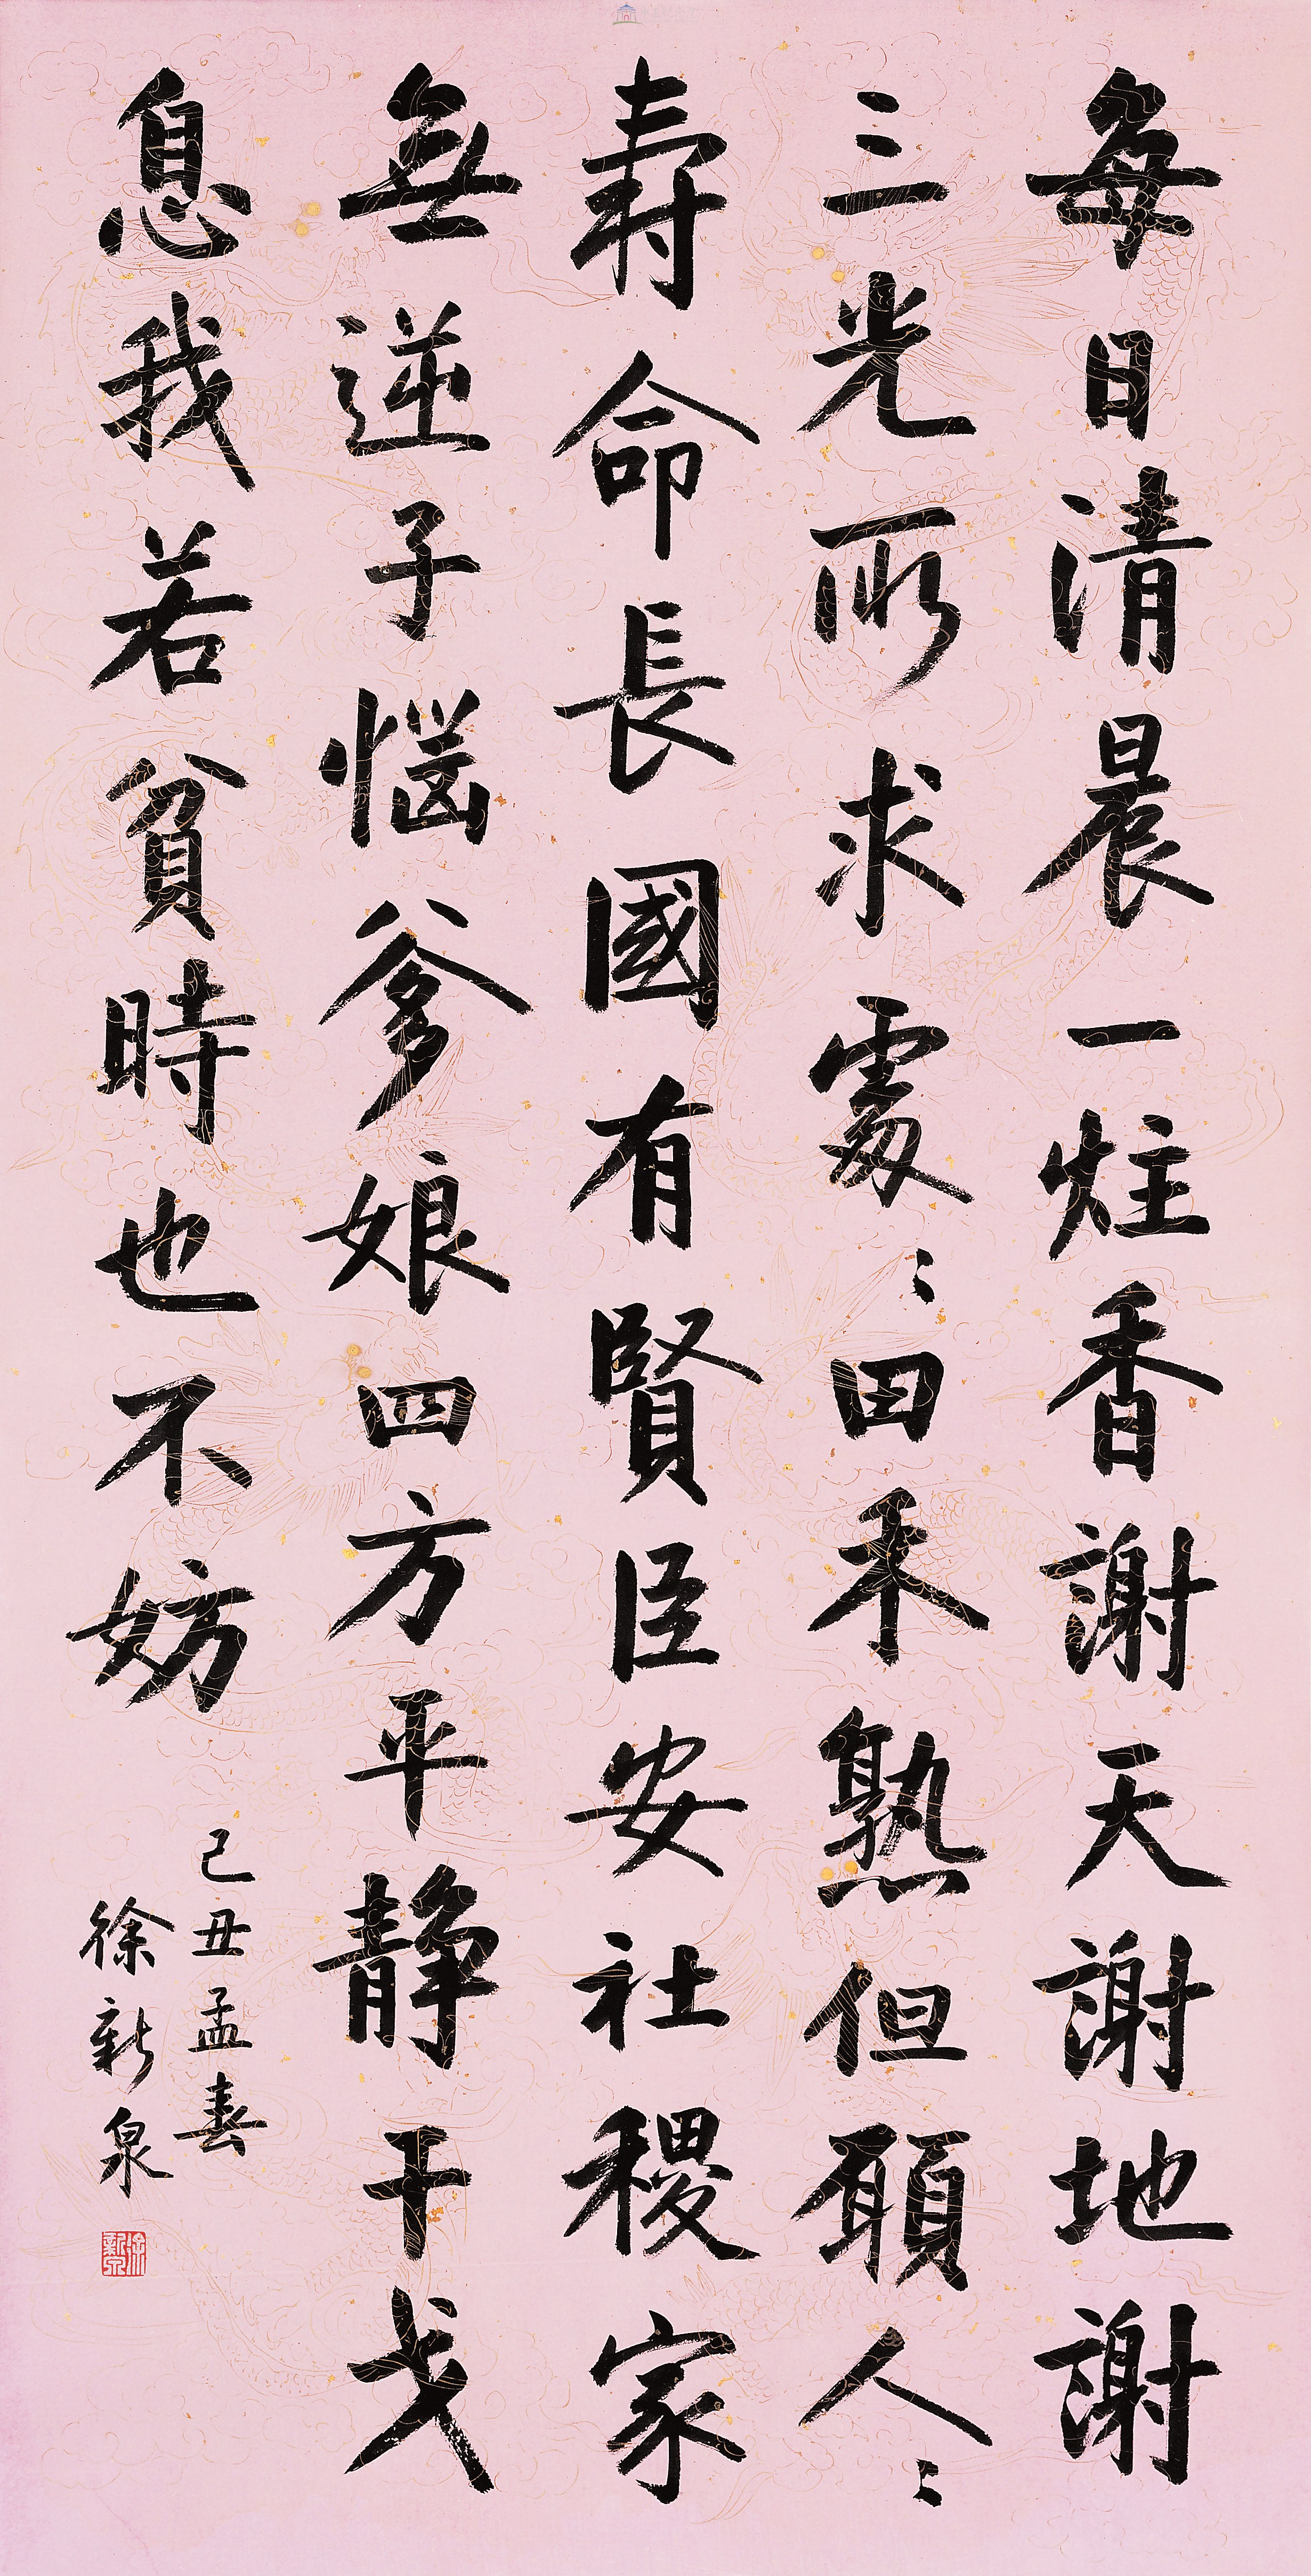 每日清晨一炷香謝天謝地謝
三光所求處〻田禾熟但願人〻
壽命長國有賢臣安社稷家
無逆子惱爹娘四方平静干戈
息我若貧時也不妨
己丑孟春
徐新泉
徐新泉